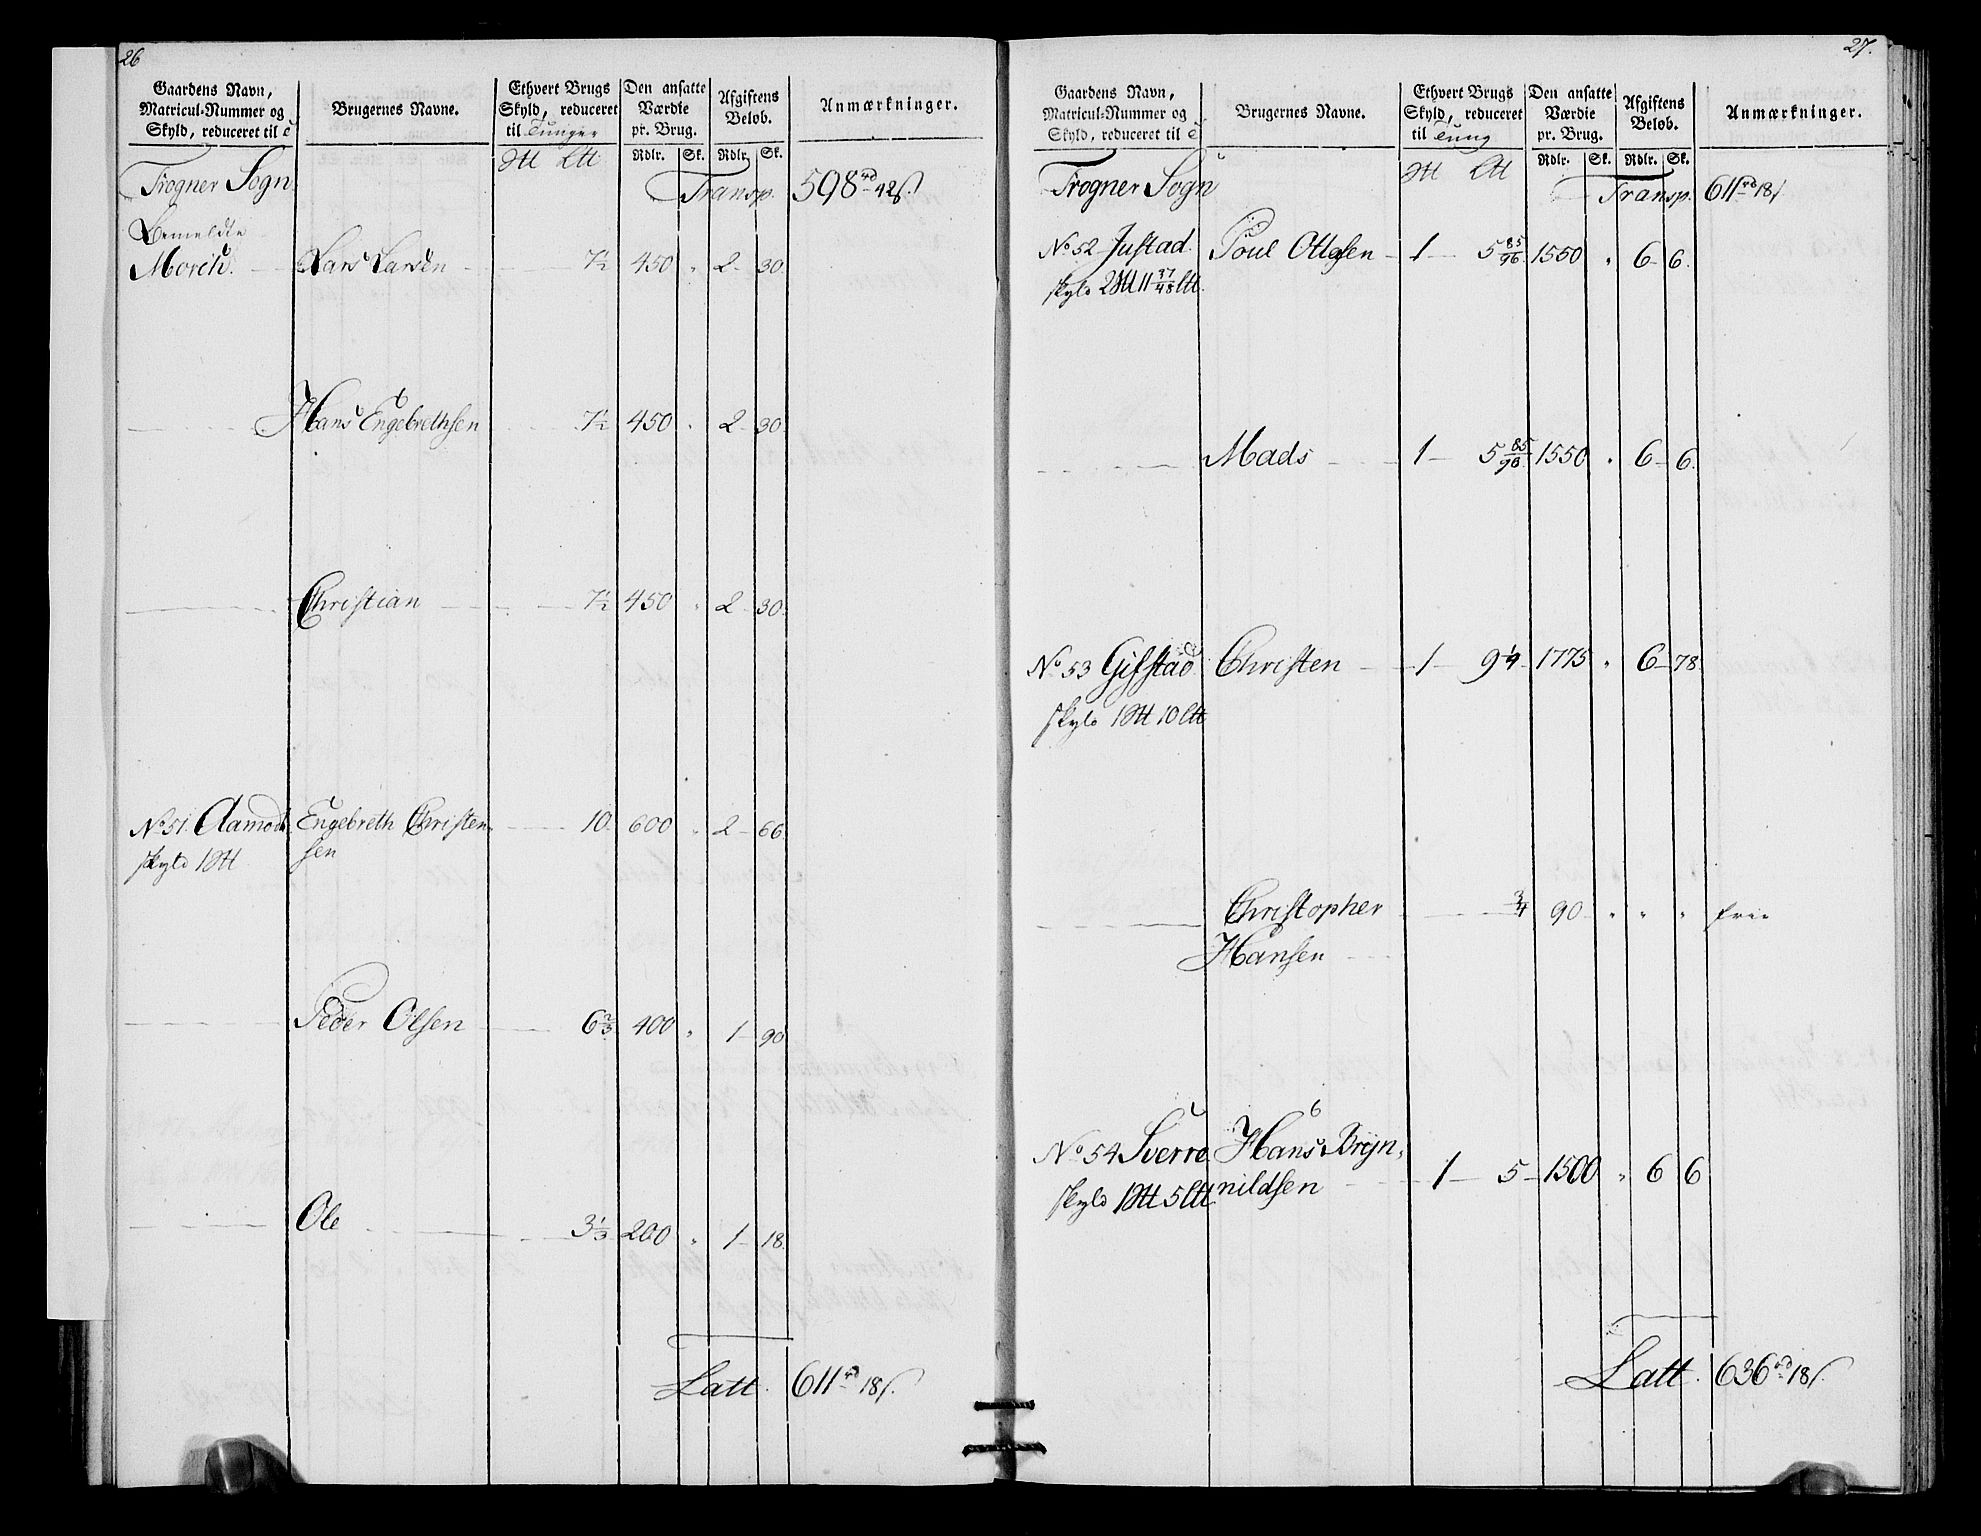 26
Gaardens Navn, Matricul-Nummer og Skyld, reduceret til
Brugernes Navne.
Ethvert Brugs Skyld, reduceret til Tunger
Den ansatte Værdie pr. Brug.
Afgiftens Beløb.
Anmærkninger.
Rdlr. Sk. Rdlr. Sk.
Trogner Sogn
Transp. 598 rd 42 s.
Bemeldte
Morch. Lars Larsen 7½ 450 " 2 30.
Hans Engebrethsen 7½ 450 " 2 30.
Christian 7½ 450 " 2 30.
No 51. Aamodt Engebreth Christen- 10. 600 " 2 66.
skyld 1 ℔ sen
Peder Olsen 6⅔ 400 " 1 90
Ole 3⅓ 200 " 1 18.
Latt. 611 rd 18 s.
27.
Gaardens Navn, Matricul-Nummer og Skyld, reduceret til
Brugernes Navne.
Ethvert Brugs Skyld, reduceret til Tung
Den ansatte Værdie pr. Brug.
Afgiftens Beløb.
Anmærkninger.
Rdlr. Sk. Rdlr. Sk.
Trogner Sogn
Transp. 611 rd 18 s
No 52 Justad. Poul Ottosen 1 5 85/96 1550 " 6 6.
skyld 2 ℔ 11 37/48 l℔.
Mads 1 5 85/96 1550 " 6 6.
No 53 Gifstad Christen 1 9¼ 1775 " 6 78.
skyld 1 ℔ 10 l℔
Christopher ¾ 90 " " " frie
Hansen
No 54 Sverre Hans Bryn- 1 5 1500 " 6 6
skyld 1 ℔ 5 l℔. nildsen
Latt. 636 rd 18 s.